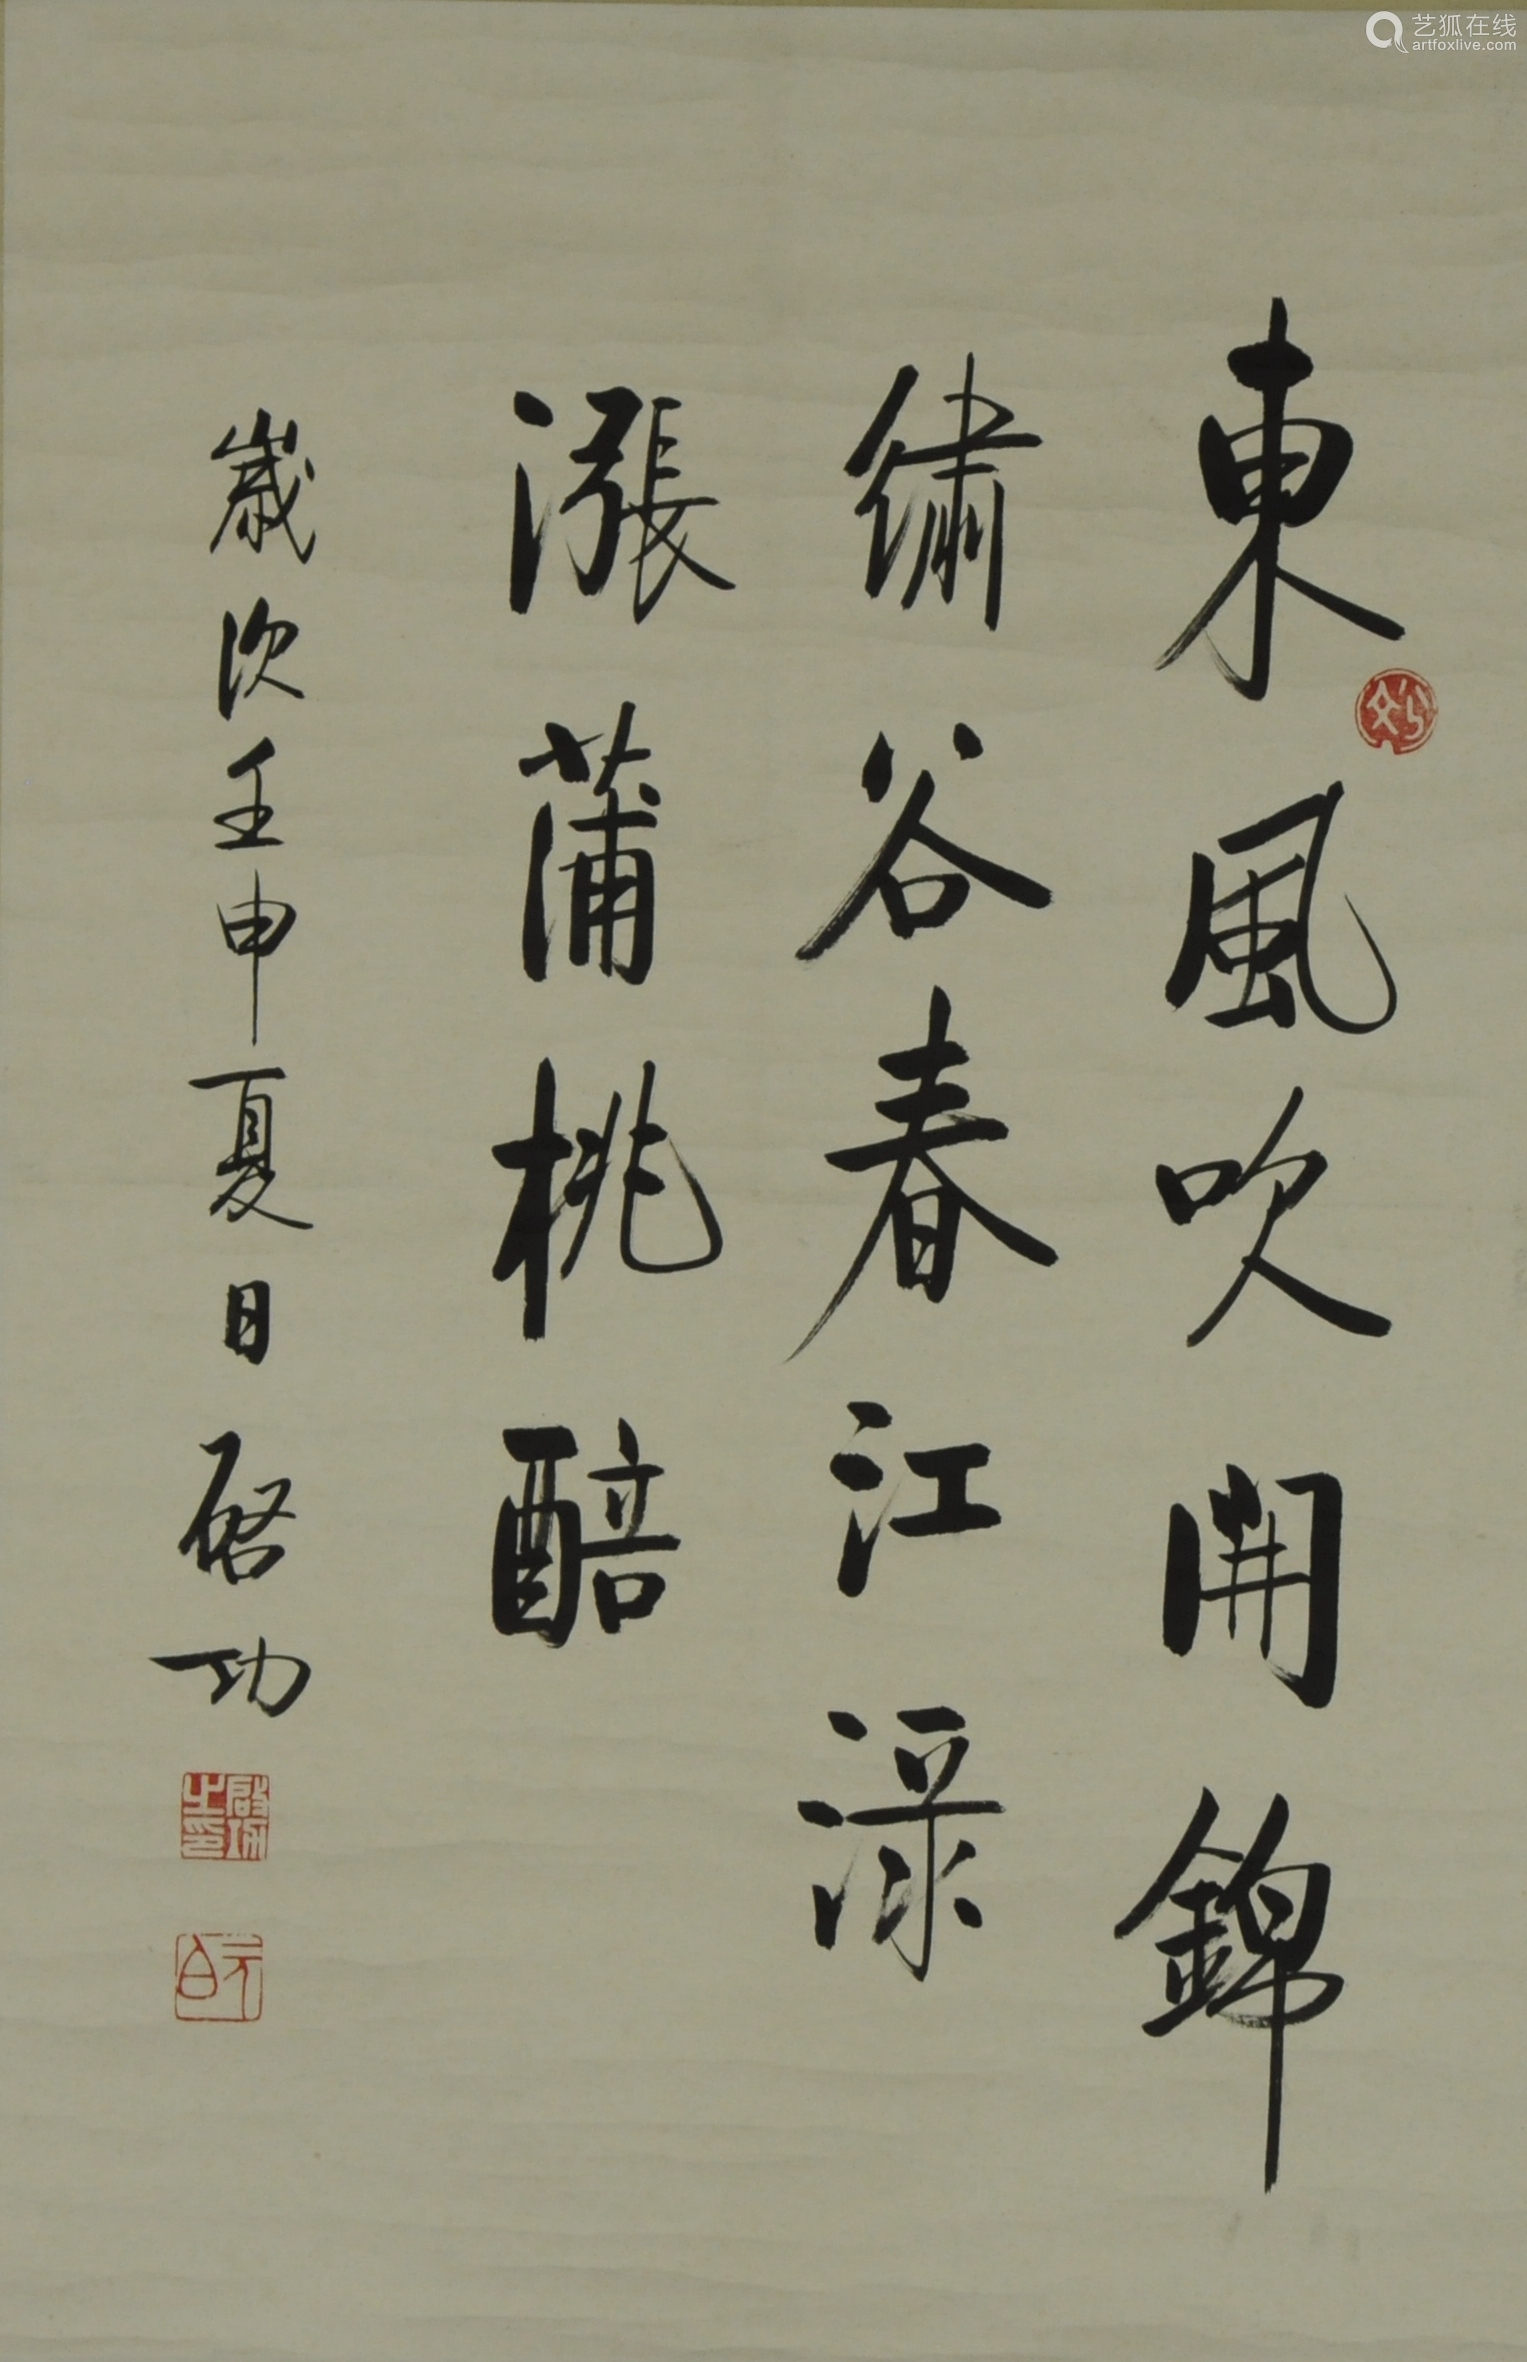 艺狐在线
artfoxlive.com
東風吹開錦
繡谷春江渌
漲蒲桃醅
歲次壬申夏日啟功
啟功之印
元白